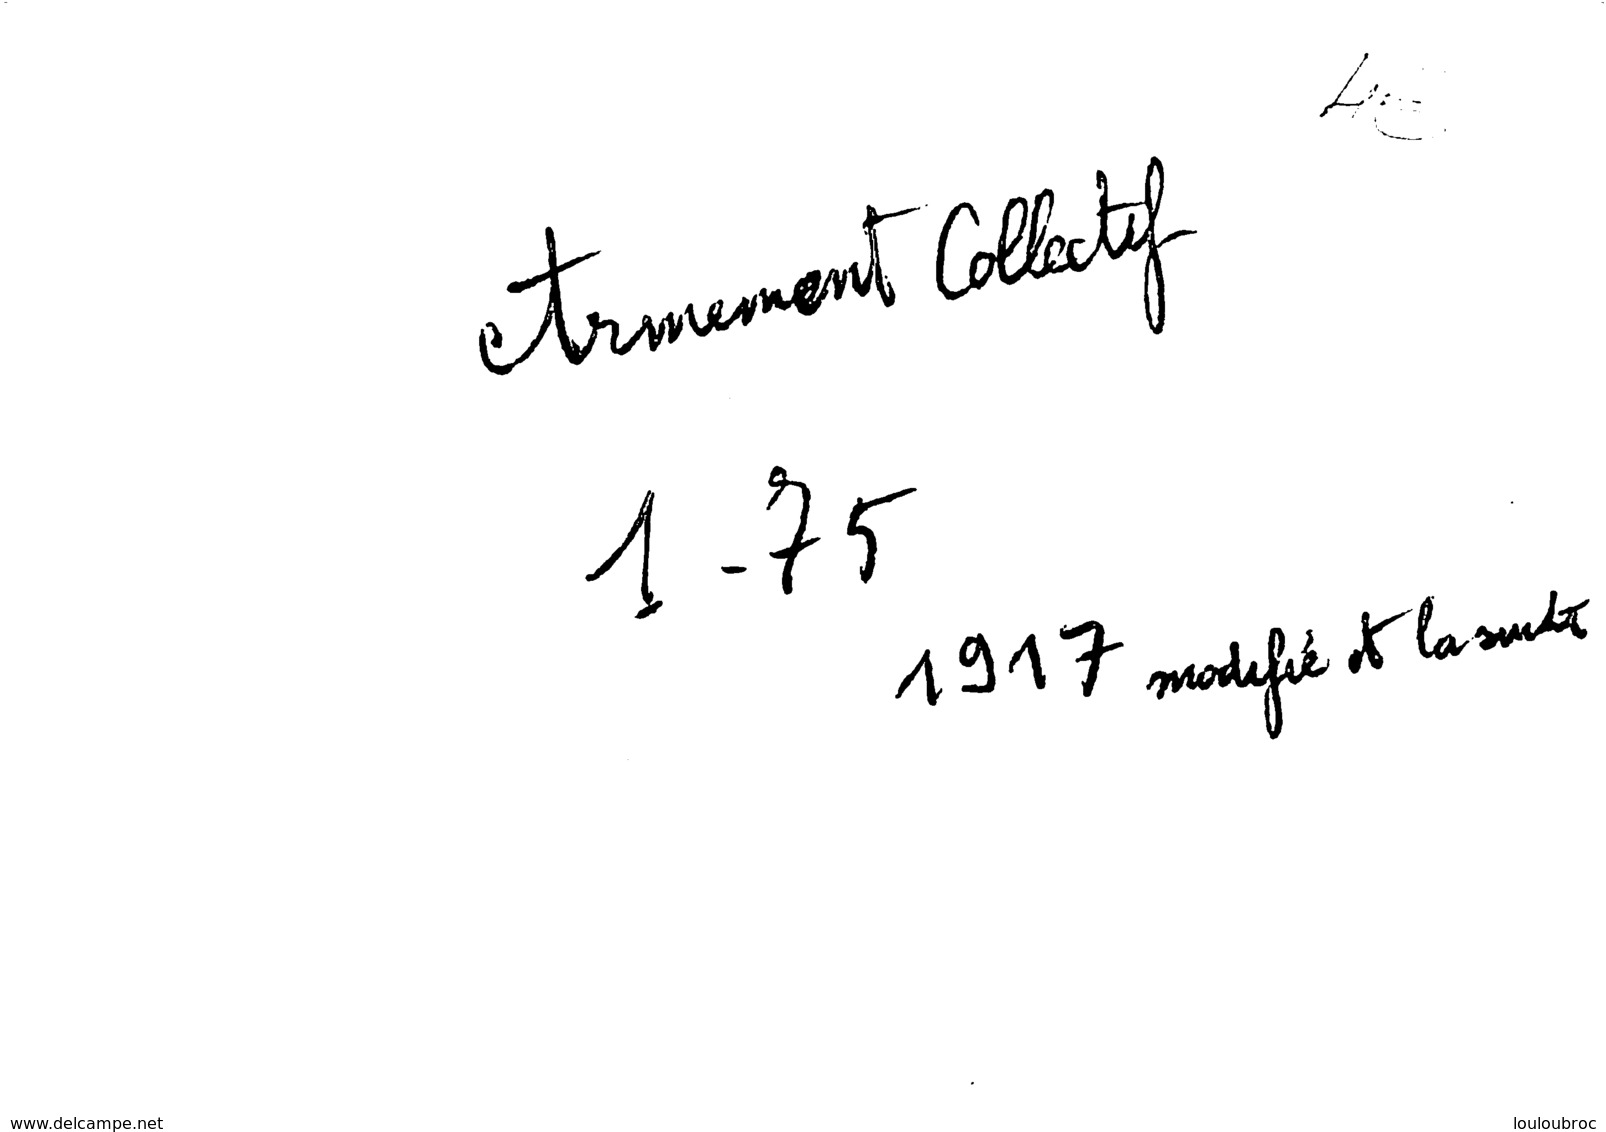 Armement Collectif
1 - 75
1917 modifié et la suite
www.delcampe.net
louloubroc